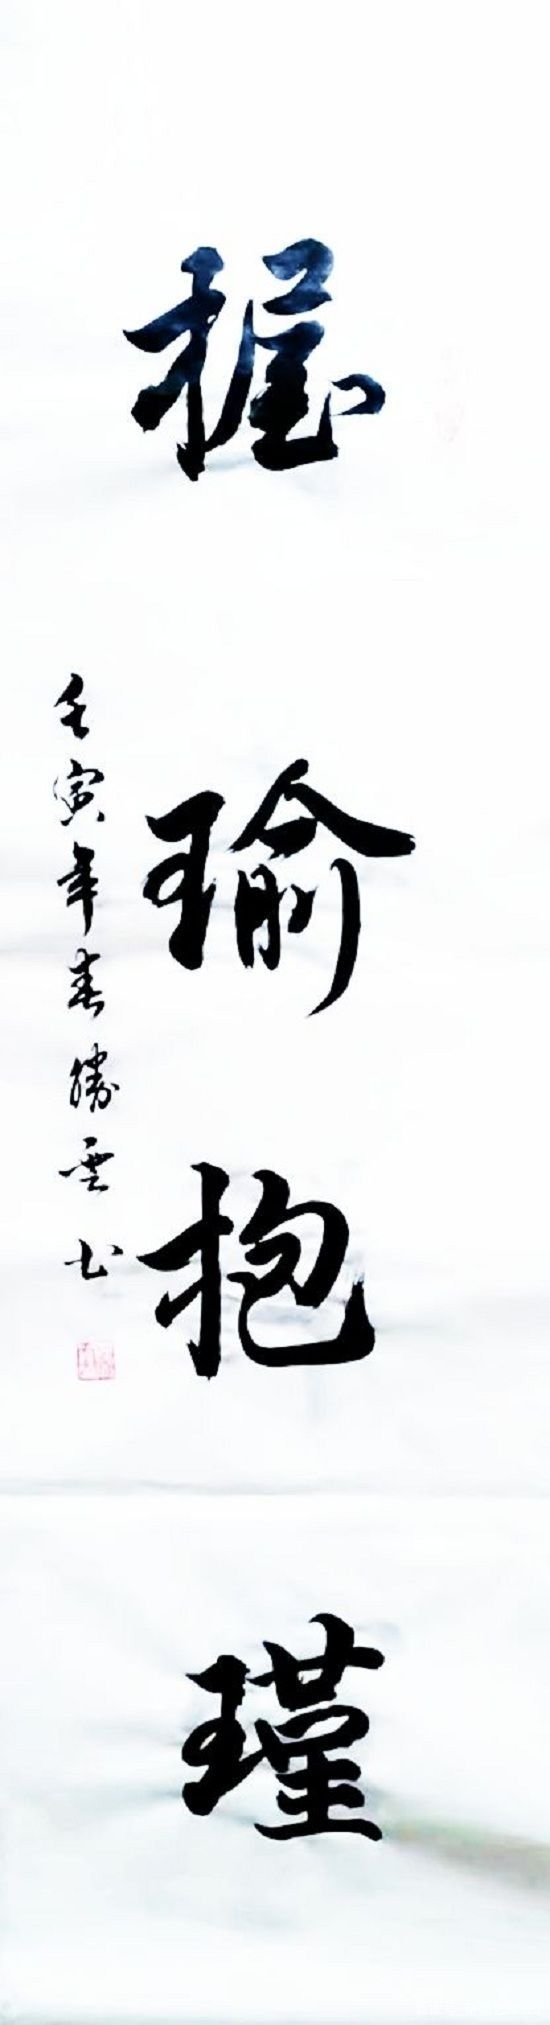 握瑜抱瑾
壬寅年春勝雲书